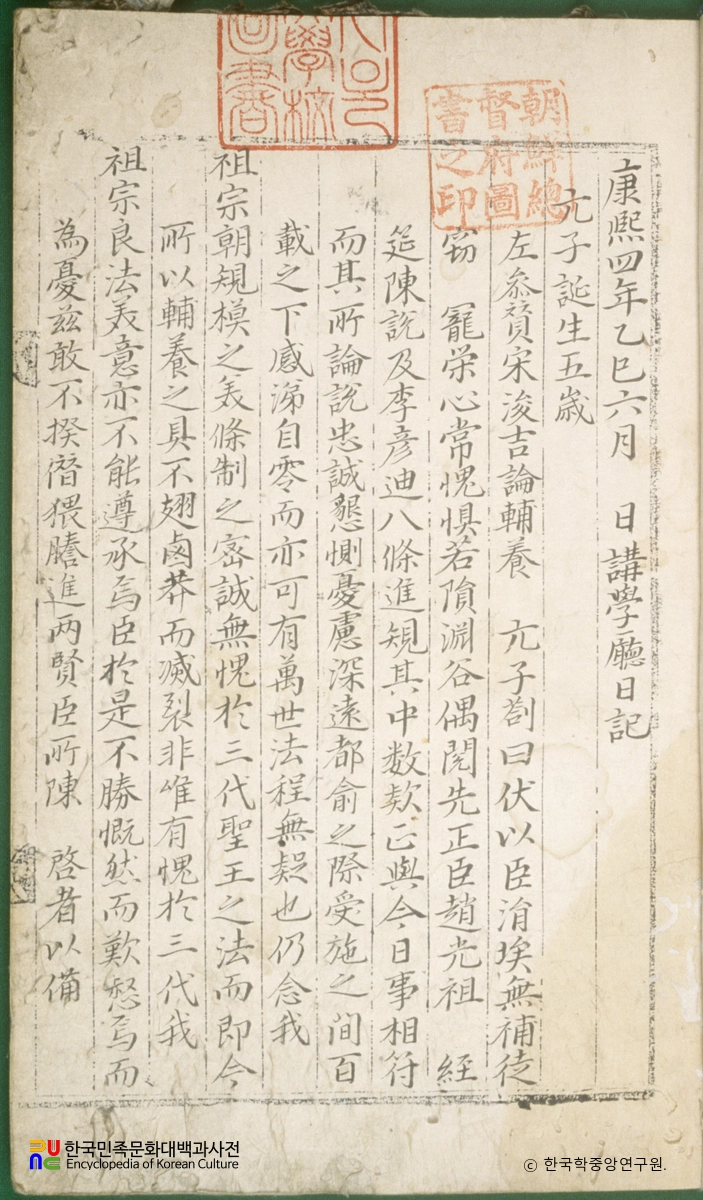 康熙四年乙巳六月　日講學廳日記
亢子誕生五歲
左參贊宋浚吉論輔養　亢子劄曰伏以臣涓埃無補徒
竊　寵荣心常愧惧若隕淵谷偶閱先正臣趙光祖　經
筵陳說及李彦迪八條進規其中数欵正與今日事相符
而其所論說忠誠懇惻憂慮深遠都俞之際受施之間百
載之下感涕自零而亦可有萬世法程無疑也仍念我
祖宗朝規模之美條制之密誠無愧於三代聖王之法而即今
所以輔養之具不翅鹵莽而滅裂非唯有愧於三代我
祖宗良法美意亦不能遵承焉臣於是不勝慨然而歎愁焉而
為憂茲敢不揆僭猥謄進两賢臣所陳　啓者以備
朝鮮總
督府圖
書之印
學校
圖書
한국민족문화대백과사전
Encyclopedia of Korean Culture
© 한국학중앙연구원.